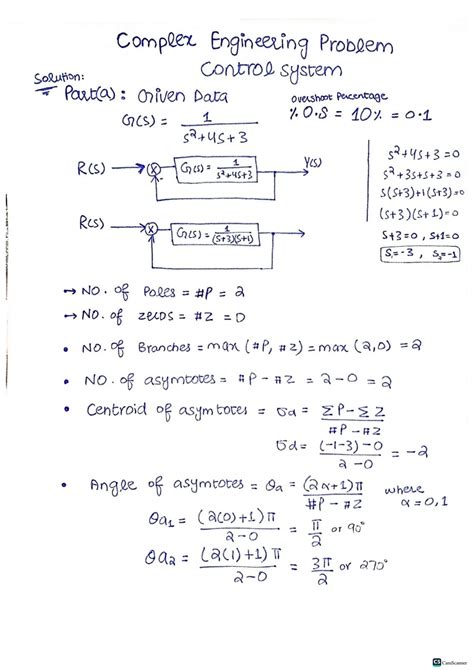 Complex Engineering Problem
Control system
Solution:
Part(a): Given Data
Overshoot Percentage
G(s) = 1/(s²+4s+3)
% O.S = 10% = 0.1
R(s) G(s) = 1/(s²+4s+3) Y(s)
s²+4s+3 = 0
s²+3s+s+3 = 0
s(s+3)+1(s+3)=0
(s+3)(s+1)=0
s+3=0, s+1=0
s₁=-3, s₂=-1
R(s) G(s) = 1/((s+3)(s+1))
→ NO. of Poles = #P = 2
→ NO. of zeros = #Z = 0
• NO. of Branches = max (#P, #Z) = max (2,0) = 2
• NO. of asymtotes = #P - #Z = 2-0 = 2
• Centroid of asymtotes = σa = (ΣP-ΣZ)/(#P-#Z)
σa = ((-1-3)-0)/(2-0) = -2
• Angle of asymtotes = θa = (2α+1)π/(#P-#Z) where α=0,1
θa₁ = (2(0)+1)π/(2-0) = π/2 or 90°
θa₂ = (2(1)+1)π/(2-0) = 3π/2 or 270°
CS CamScanner